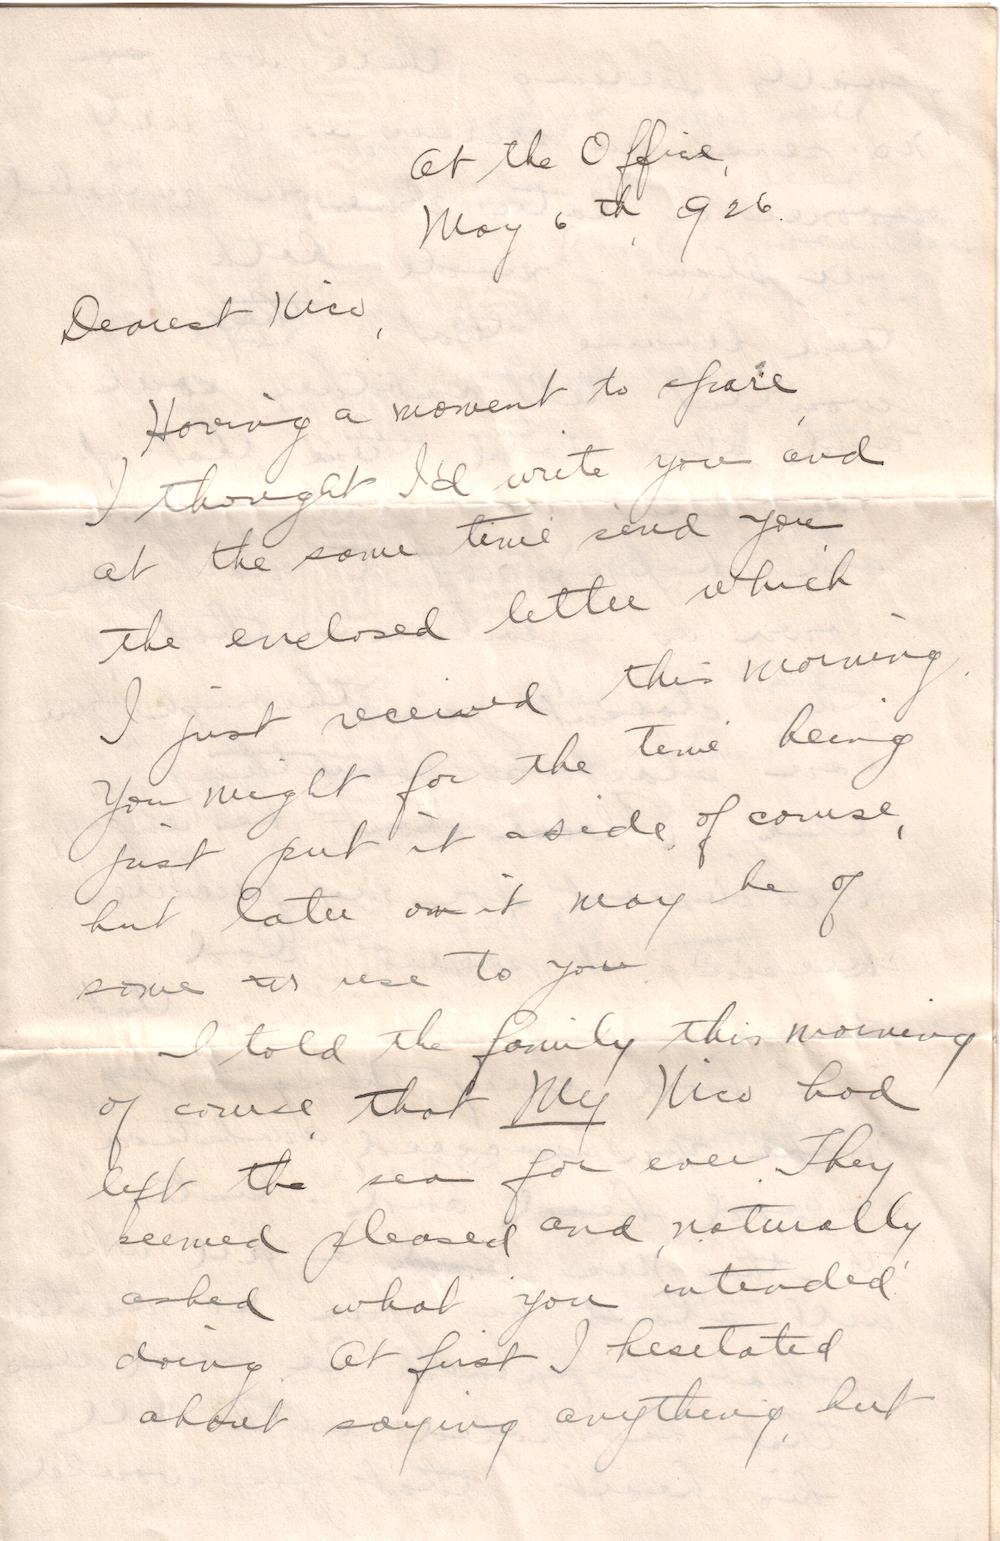 At the Office,
May 6th, 1926.
Dearest Nico,
Having a moment to spare,
I thought I'd write you and
at the same time send you
the enclosed letter which
I just received this morning.
You might for the time being
just put it aside, of course,
but later on it may be of
some use to you
I told the family this morning
of course, that My Nico had
left the sea for ever. They
seemed pleased and, naturally
asked what you intended
doing. At first I hesitated
about saying anything, but